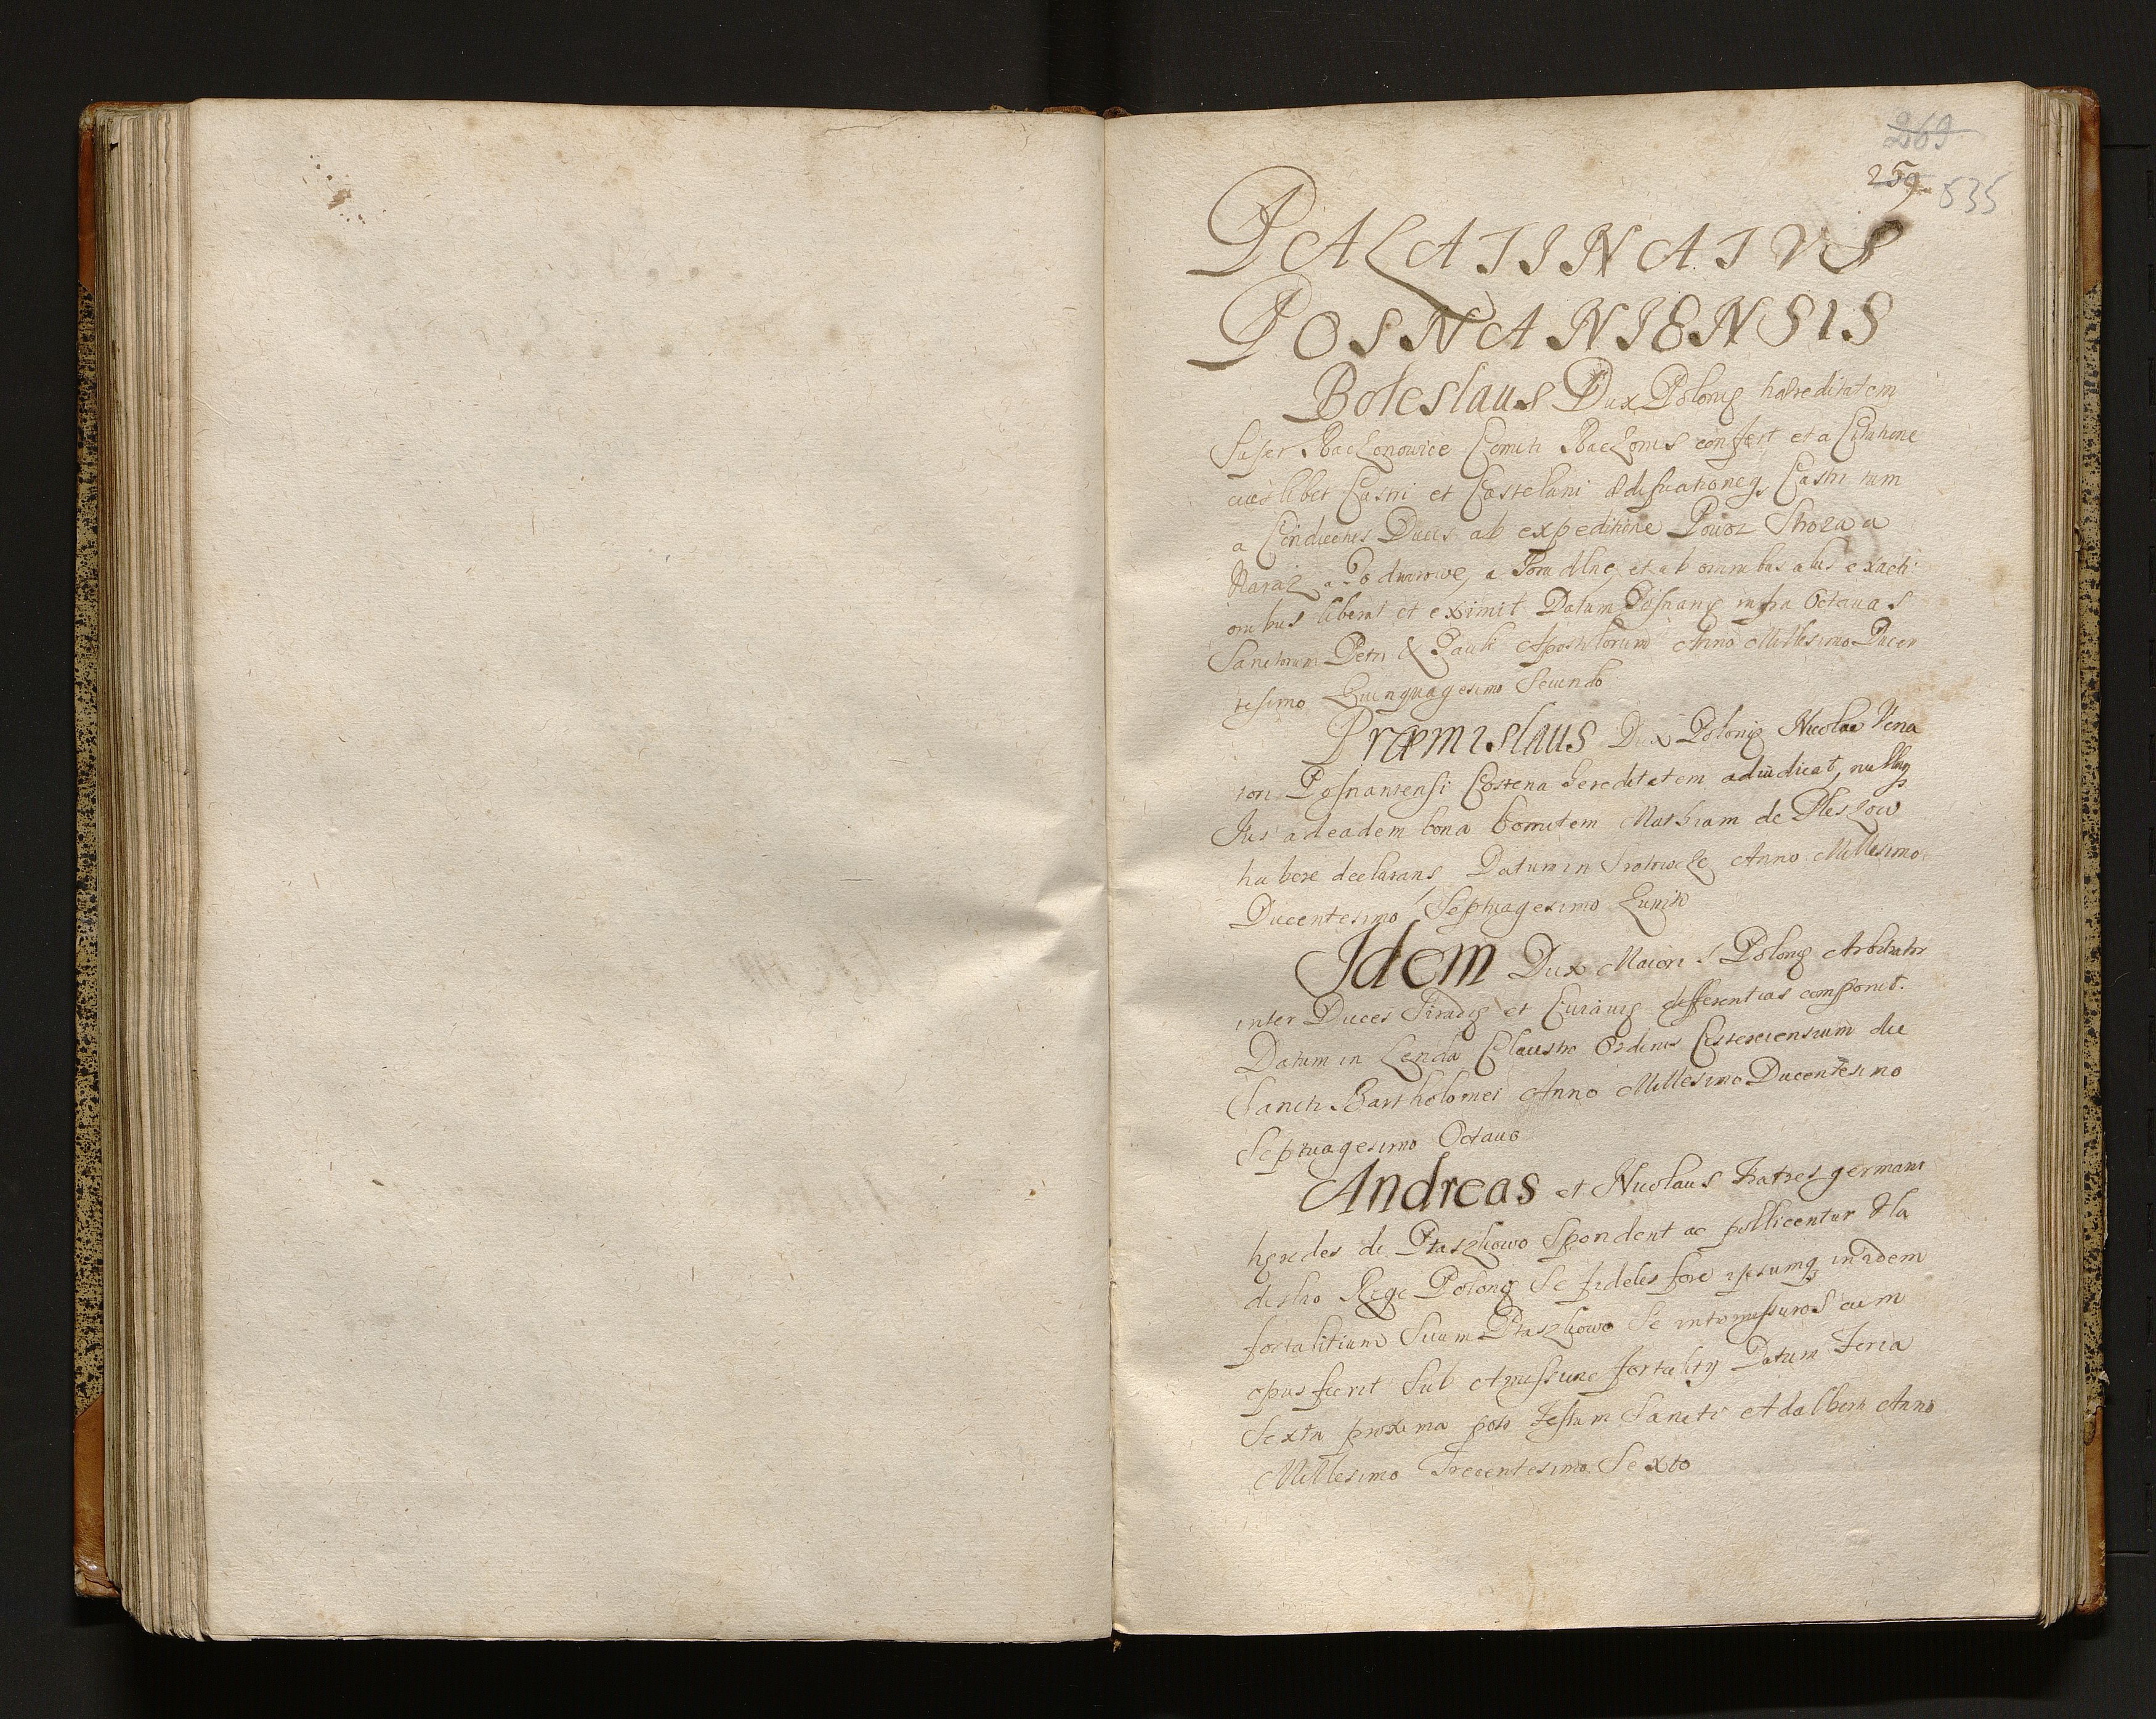 269
259 535
PALATINATVS
POSNANIENSIS
Boleslaus Dux Polonię hæreditatem
super Raczonowice Comiti Raczonis confert et a Citatione
cuiuslibet Castri et Castelani ædificationeq Castri tum
a Conductus Ducis ab expeditione Powoz Stroza a
Naraz a Podworowe, a Poradlne, et ab omnibus alijs exacti
onibus liberat et eximit Datum Posnanię infra Octauas
Sanctorum Petri & Pauli Apostolorum Anno Millesimo Ducen
tesimo Quinquagesimo Secundo
Præmislaus Dux Polonię Nicolao Vena
tori Posnaniensi Costena hereditatem adiudicat, nullũq
Jus ad eadem bona Comitem Mathiam de Pleszow
habere declarans Datum in Anno Millesimo
Ducentesimo Septuagesimo Quinto
Idem Dux Maioris Polonię Arbitrator
inter Duces Siradię et Cuiauię differentias componit.
Datum in Lenda Claustro Ordinis Cisterciensium die
Sancti Bartholomei Anno Millesimo Ducentesimo
Septuagesimo Octauo
Andreas et Nicolaus Fratres germani
hęredes de Ptaszkowo Spondent ac pollicentur Vla
dislao Rege Polonię Se fideles fore ipsumq in idem
fortalitium Suum Ptaszkowo Se intromissuros cum
opus fuerit Sub Amissione fortalitij Datum Feria
Sexta proxima post Festum Sancti Adalberti Anno
Millesimo Trecentesimo Sexto